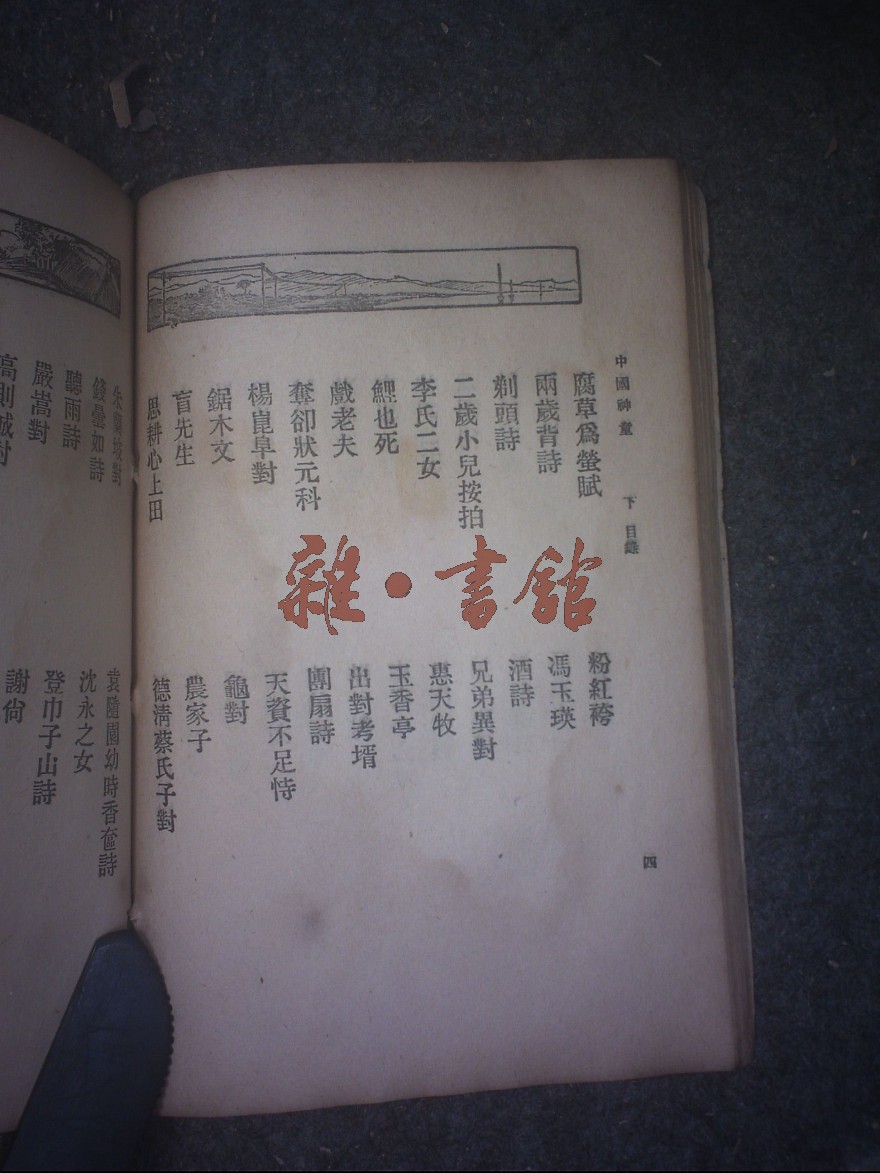 中國神童 下 目錄
四
腐草爲螢賦
兩歲背詩
剃頭詩
二歲小兒按拍
李氏二女
鯉也死
戲老夫
奪卻狀元科
楊崑阜對
鋸木文
盲先生
思耕心上田
粉紅袴
馮玉瑛
酒詩
兄弟異對
惠天牧
玉香亭
出對考壻
團扇詩
天資不足恃
龜對
農家子
德淸蔡氏子對
朱蘭坡對
錢曇如詩
聽雨詩
嚴嵩對
高則誠對
袁隨園幼時香奩詩
沈永之女
登巾子山詩
謝尙
雜·書館